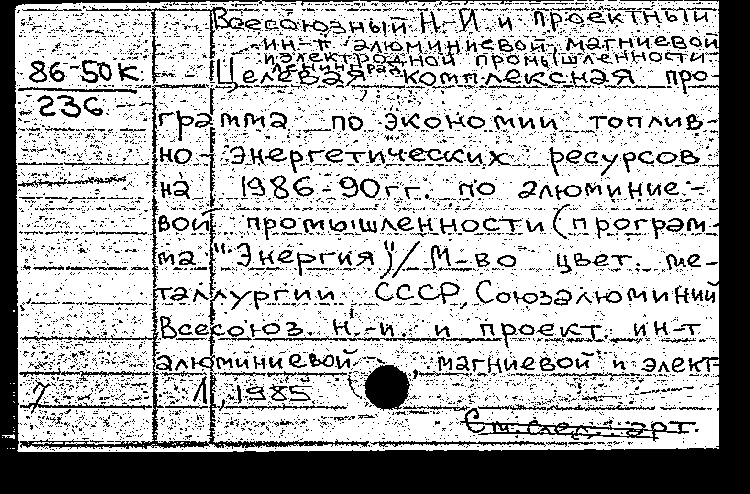 Всесоюзный Н.-И и проектный
ин-т алюминиевой, магниевой
и электродной промышленности.
Ленинград
86-50К
236
Целевая комплексная про-
грамма по экономии топлив-
но-энергетических ресурсов
на 1986-90гг. по алюминие-
вой промышленности (програм-
ма "Энергия")/М-во цвет. ме-
таллургии СССР, Союзалюминий
Всесоюз. н.-и. и проект. ин-т
алюминиевой, магниевой и элект
Л, 1985
См. след. арт.